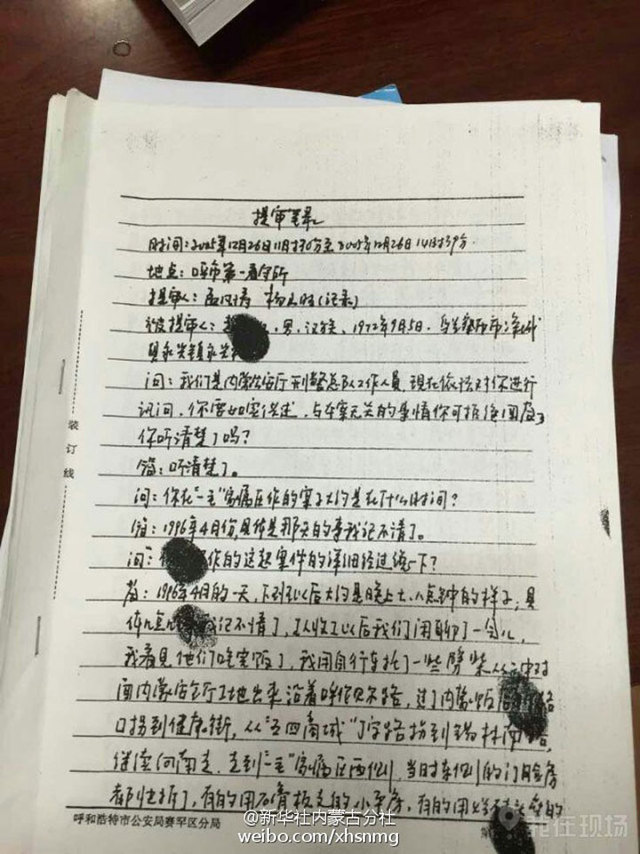 提审笔录
时间：2005年12月26日11时30分至2005年12月26日14时39分
地点：呼市第一看守所
提审人：孟 杨 （记录）
被提审人：赵 ，男，汉族，1972年9月5日，乌兰察布市凉城
县永兴镇永兴
问：我们是内蒙公安厅刑警总队工作人员，现在依法对你进行
讯问，你需如实供述，与本案无关的事情你可拒绝回答，
你听清楚了吗？
答：听清楚了。
问：你在“一毛”家属区作的案子大约是在什么时间？
答：1996年4月份，具体是那天的事我记不清了。
问： 作的这起案件的详细经过说一下？
答：1996年4月的一天，下班以后大约是晚上七、八点钟的样子，具
体几点 我记不清了，了以后我们闲聊了一会儿，
我看见他们吃完饭了，我用自行车托了一些劈柴从 对
面内蒙公安厅工地出来沿着呼伦贝尔路，过了内蒙饭 路
口拐到健康街，从“五四商城”丁字路拐到锡林南路，
继续向南走，走到“一毛”家属区西侧，当时东侧的门
都快拆了，有的用石膏板支的小平房，有的用 的
装订线
呼和浩特市公安局赛罕区分局
第
@新华社内蒙古分社
weibo.com/xhsnmg
我在现场